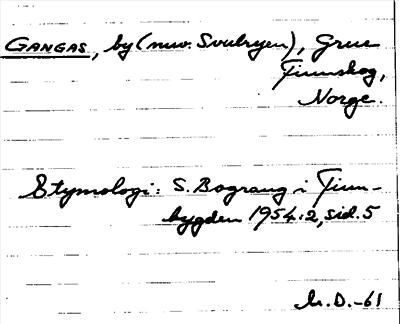 GANGAS, by (nuv. Svulryen), Grue
Finnskog,
Norge.
Etymologi: S. Bograng i Finn-
bygden 1954:2, sid. 5
M.D.-61